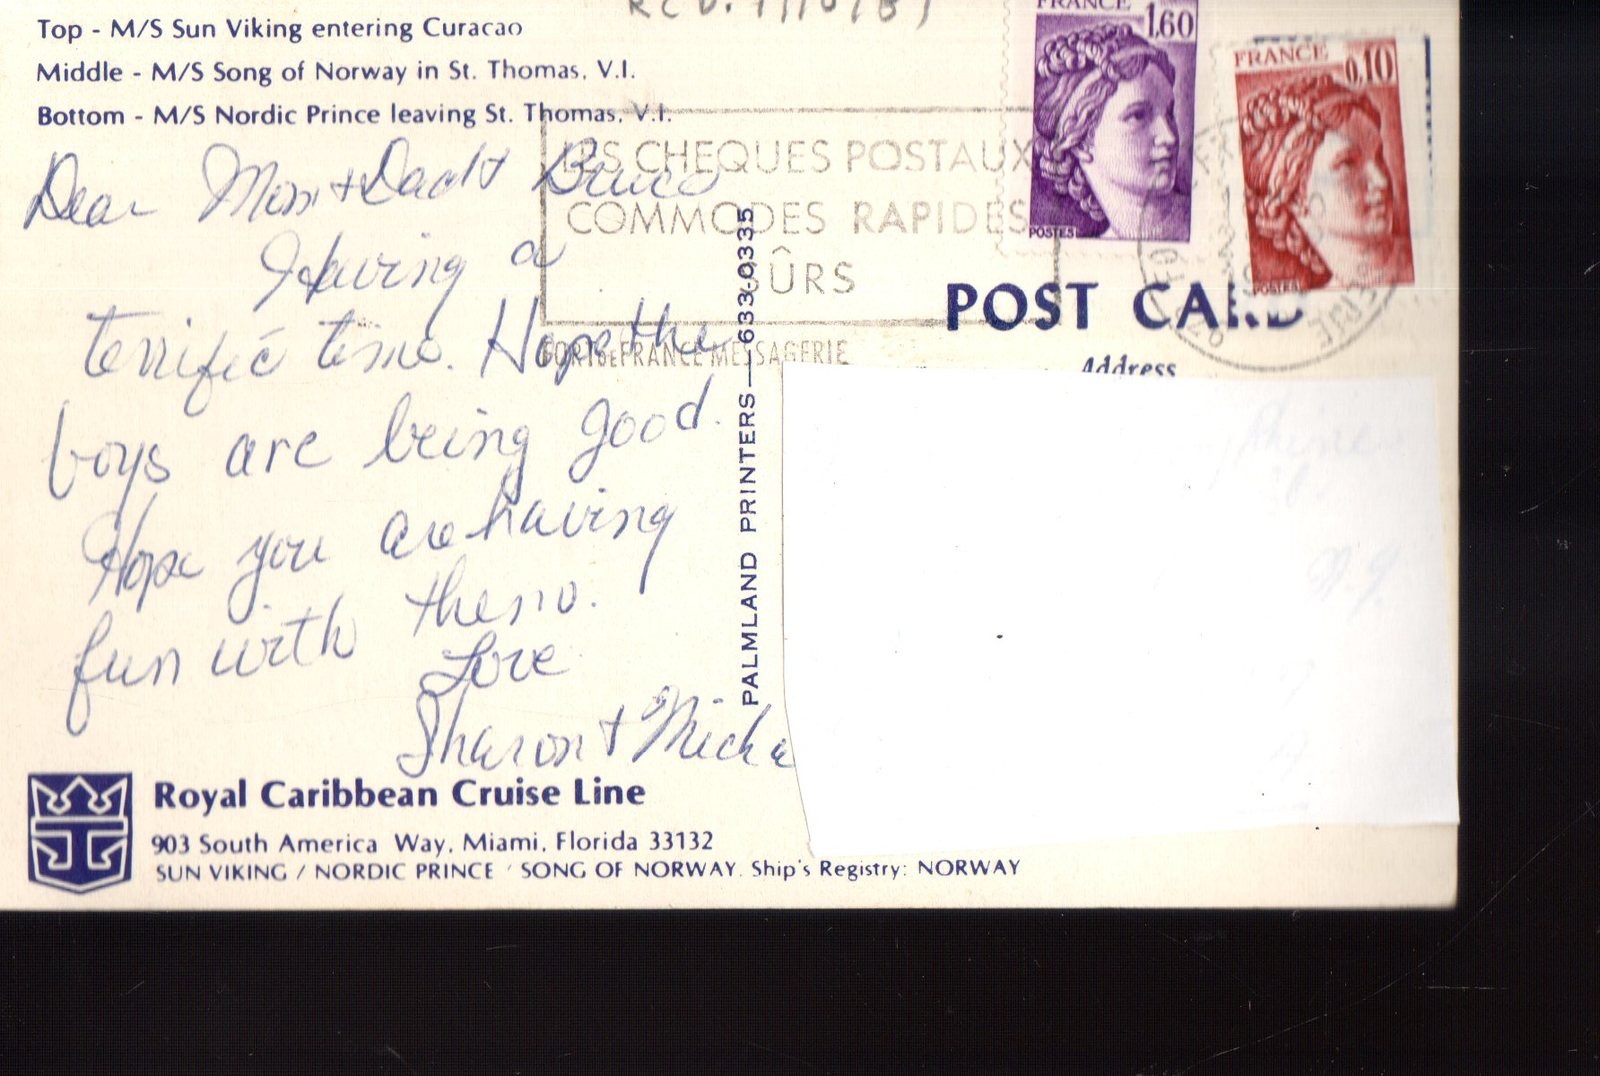 Top - M/S Sun Viking entering Curacao
Middle - M/S Song of Norway in St. Thomas, V.I.
Bottom - M/S Nordic Prince leaving St. Thomas, V.I.
FRANCE 1.60
POSTES
FRANCE 0,10
POSTES
LES CHEQUES POSTAUX
COMMODES RAPIDES
SÛRS
FORT DE FRANCE MESSAGERIE
POST CARD
Address
Dear Mom + Dad +
Having a
terrific time. Hope the
boys are being good.
Hope you are having
fun with them.
Love
Sharon + Micha
PALMLAND PRINTERS — 633-0335
Royal Caribbean Cruise Line
903 South America Way, Miami, Florida 33132
SUN VIKING / NORDIC PRINCE / SONG OF NORWAY. Ship's Registry: NORWAY